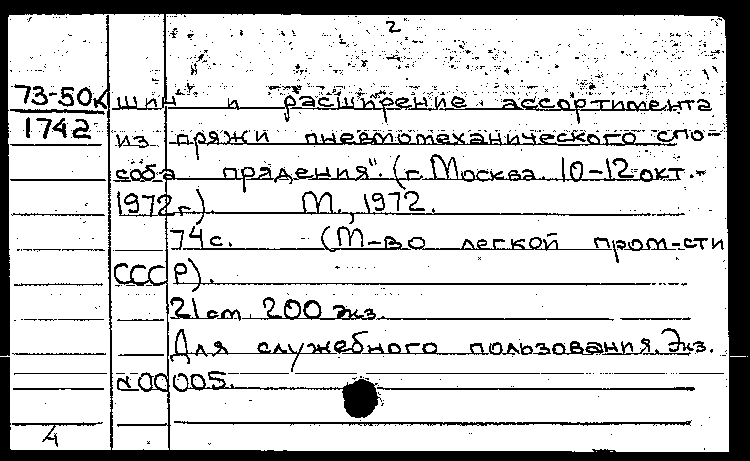 2
73-50к шин и расширение ассортимента
1742 из пряжи пневмомеханического спо-
соба прядения". (г. Москва. 10-12 окт.-
1972г.). М., 1972.
74с. (М-во легкой пром-сти
СССР).
21 см. 200 экз.
Для служебного пользования. Экз.
№00005.
4